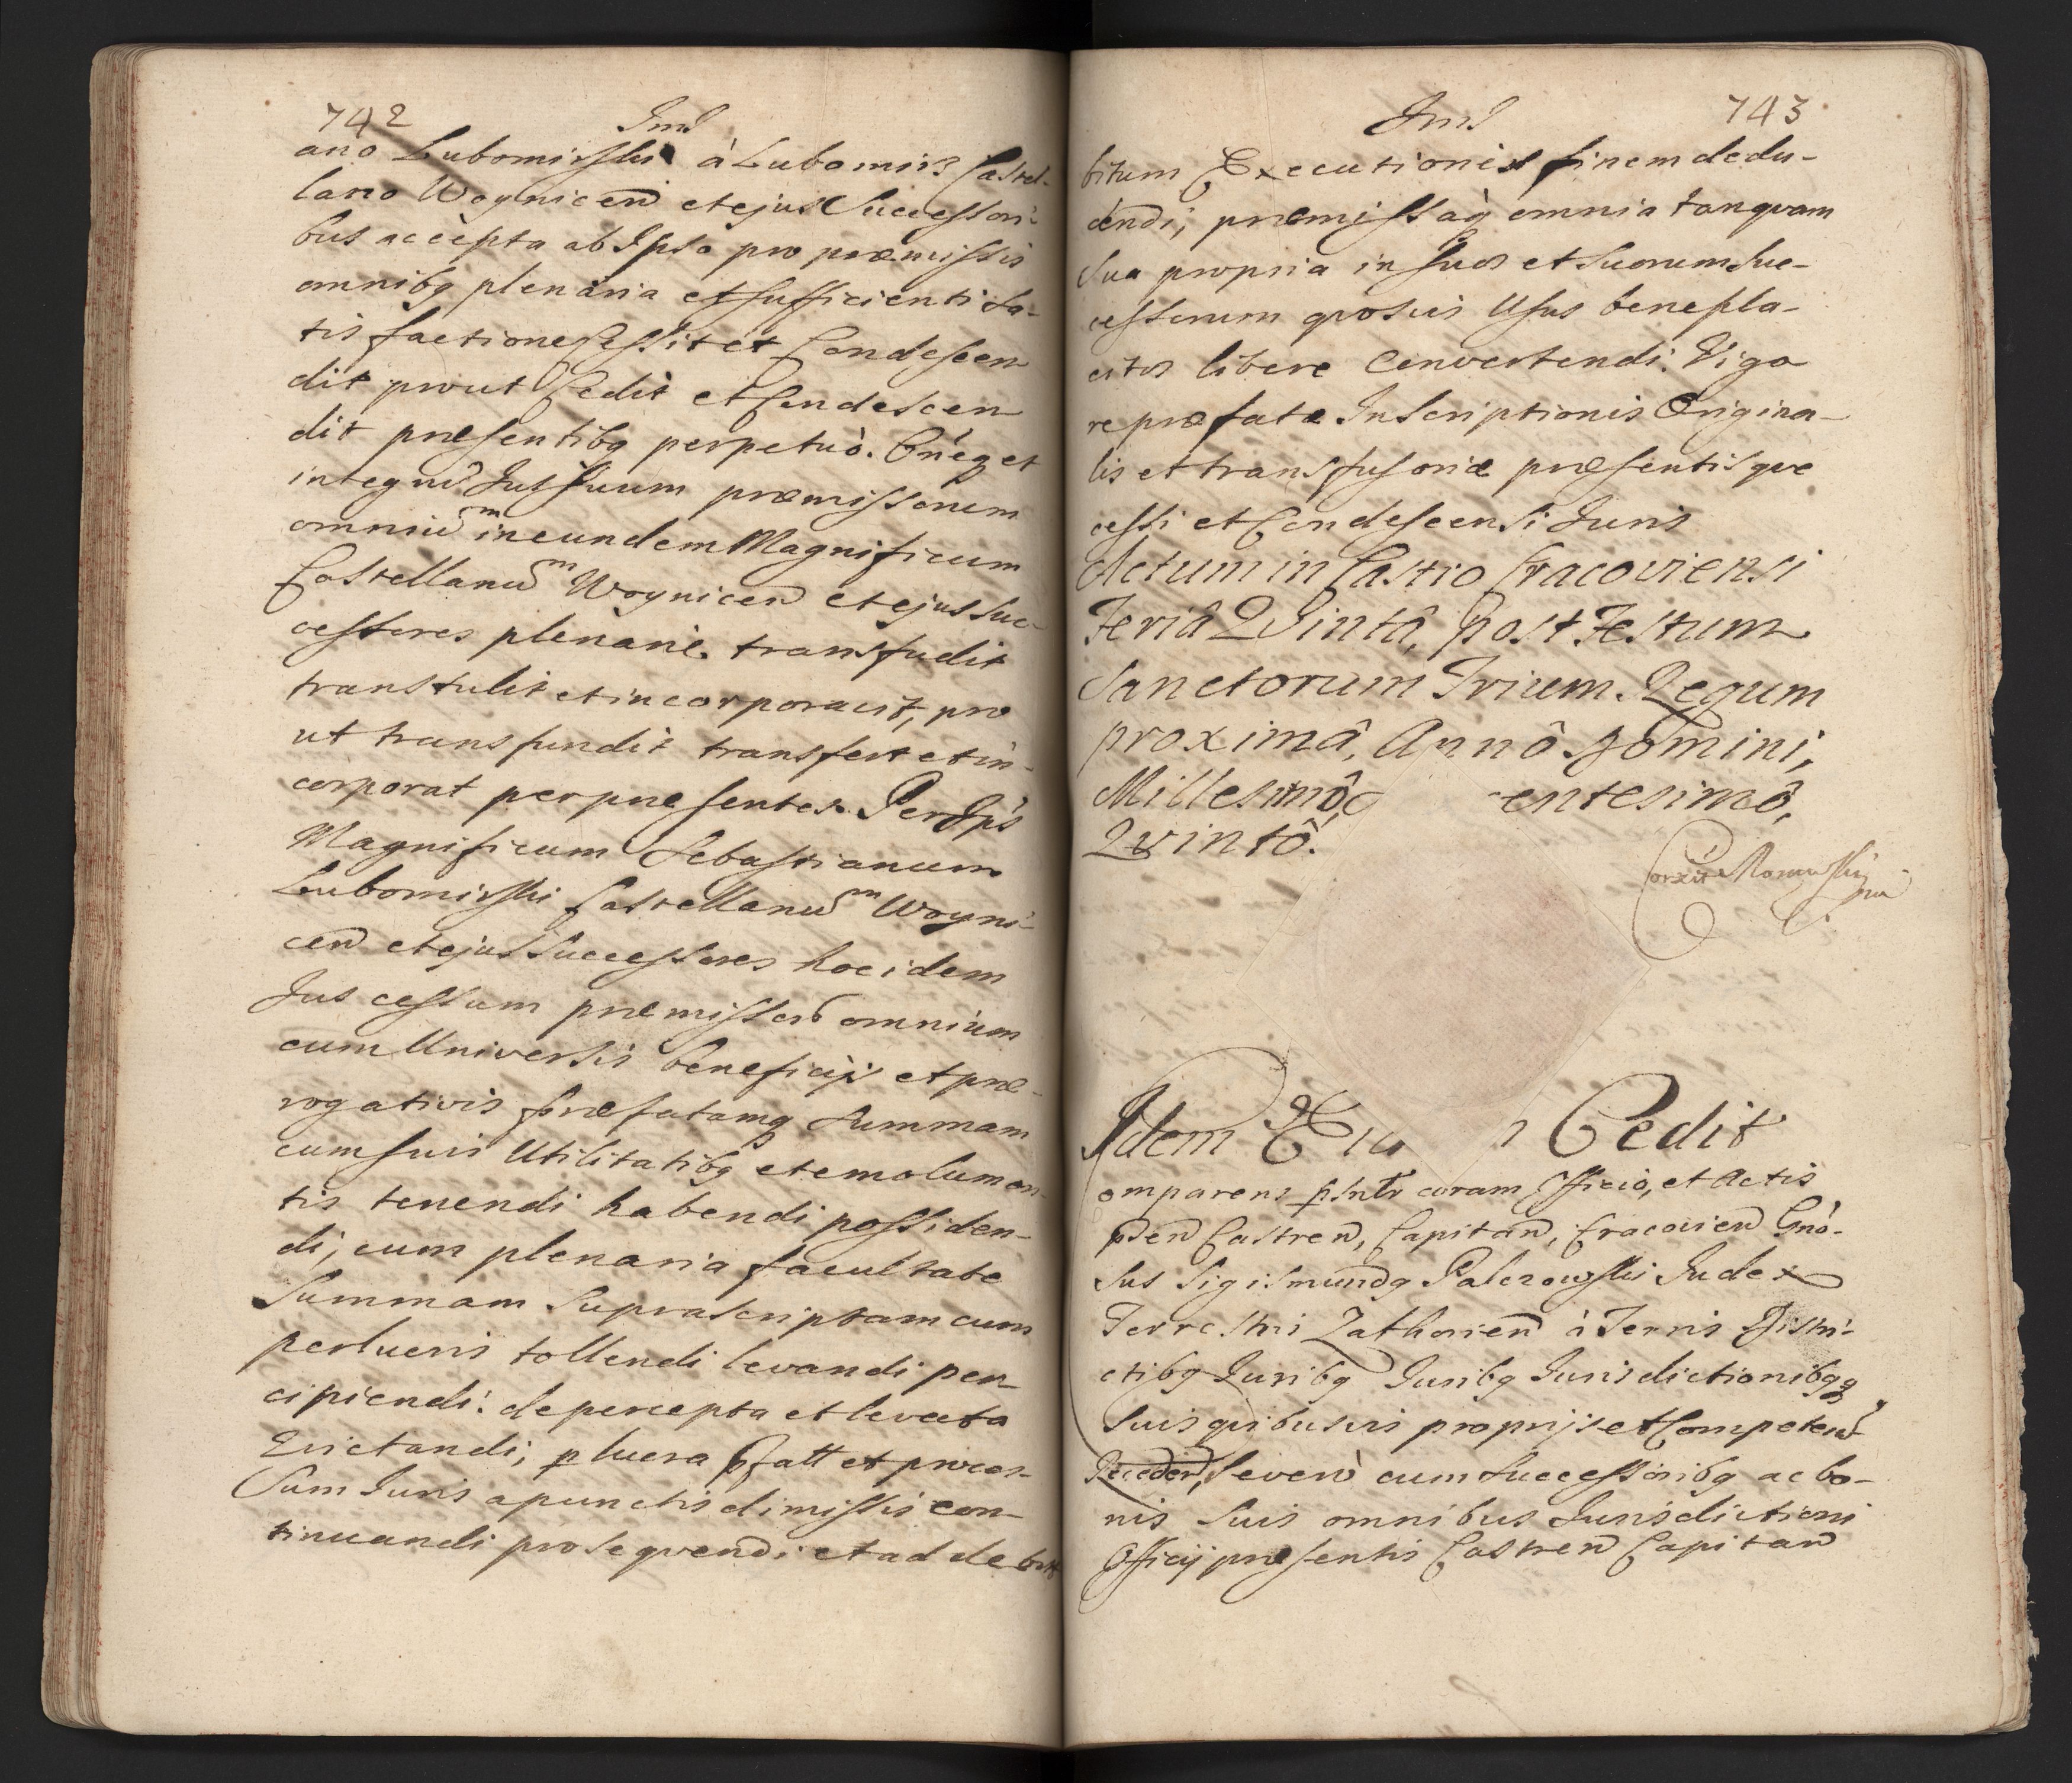 742
Jms
ano Lubomirski à Lubomirz Castel-
lano Woyniceñ et ejus Successori-
bus accepta ab Ipso pro præmissis
omnibq plenaria et sufficienti sa-
tisfactione Cessit et Condescen
dit prout Cedit et Condescen
dit præsentibq perpetuò. Oñeq et
integrũ Jus suum præmissorum
omniũm in eundem Magnificum
Castellanũm Woyniceñ et ejus Suc-
cessores plenarie transfudit
transtulit et incorporavit, pro
ut transfundit transfert et in-
corporat per præsentes. Per Ipš
Magnificum Sebastianum
Lubomirski Castellanũm Woyni-
ceñ et ejus Successores hoc idem
Jus cessum præmissorũ omnium
cum Universis beneficijs et præ-
rogativis præfatamq Summam
cum suis Utilitatibq et emolumen-
tis tenendi habendi possiden-
di, cum plenaria facultate
Summam Suprascriptam cum
perlucris tollendi levandi per-
cipiendi: de percepta et levata
Quietandi; p lucra pfatt et proces-
sum Juris a punctis dimissis con-
tinuandi prosequendi et ad debi
Jms
743
bitum Executionis finem dedu-
cendi; præmissaq omnia tanquam
sua propria in suos et suorum Suc-
cessorum quosvis Usus benepla-
citos libere Convertendi. Vigo
re præfatæ Inscriptionis Origina-
lis et transfusoriæ præsentisque
cessi et Condescensi Juris
Actum in Castro Cracoviensi
Feriâ Qvintâ, post Festum
Sanctorum Trium Regum
proximâ, Annô Domini,
Millesimô, entesimô,
Qvintô.
Idem Cedit
omparens pšntr coram Officio, et Actis
pseñ Castreñ, Capitañ, Cracovieñ Gñò-
sus Sigismundq Palczowski Judex
Terrestris Zathorieñ à Terris Distri-
ctibq Juribq Juribq Jurisdictionibqq
suis quibusvis proprijs et Competeñ
Recedeñ, Severò cum Successoribq ac bo-
nis suis omnibus Jurisdictioni
Officij præsentis Castreñ Capitañ